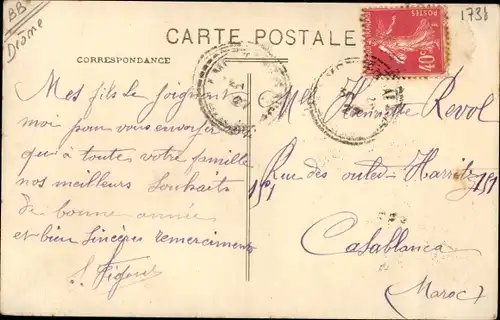 BB
Drôme
1738
CARTE POSTALE
CORRESPONDANCE
POSTES
40c
Mes fils se joignent à
moi pour vous envoyer
qu'à toute votre famille
nos meilleurs souhaits
de bonne année
et bien sincères remerciements
Mlle Revol
151 Rue des 151
Casablanca
Maroc